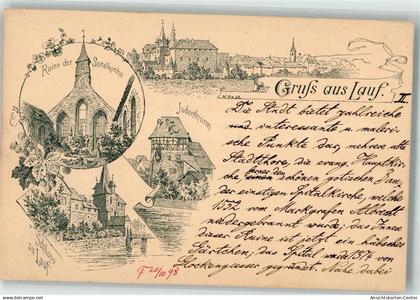 Ruine der Spitalkirche
Gruss aus Lauf.
II
Judenthurm
Schloss Lauf
Die Stadt bietet zahlreiche
und interessante u. maleri-
sche Punkte dar, mehrere alte
Stadtthore, die evang. Hauptkir-
che, einen schönen gotischen Bau,
der einstigen Spitalkirche, welche
1552 vom Markgrafen Albrecht
niedergebrannt wurde, das Innere
dieser Ruine ist jetzt ein hübsches
Gärtchen, das Spital wurde 1374 von
Glockengiesser gegründet. Nahe dabei
20/10 98
www.ansichtskarten-center.de